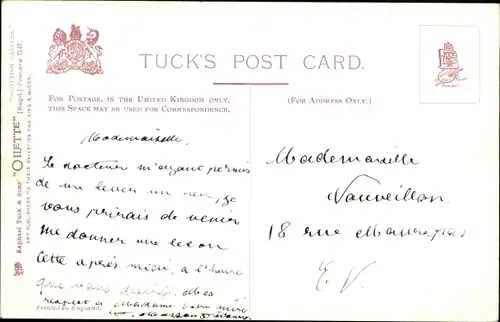 TUCK'S POST CARD.
FOR POSTAGE, IN THE UNITED KINGDOM ONLY,
THIS SPACE MAY BE USED FOR CORRESPONDENCE.
(FOR ADDRESS ONLY.)
Raphael Tuck & Sons' "OILETTE"
"SCOTTISH CASTLES."
ART PUBLISHERS TO THEIR MAJESTIES THE KING & QUEEN.
Mademoiselle,
le docteur m'ayant permis
de me lever un peu, je
vous prierais de venir
me donner une leçon
cette après midi, à l'heure
que vous
respect à Madame votre mère
Printed in England.
Mademoiselle
Vauveillon
18 rue
E. V.